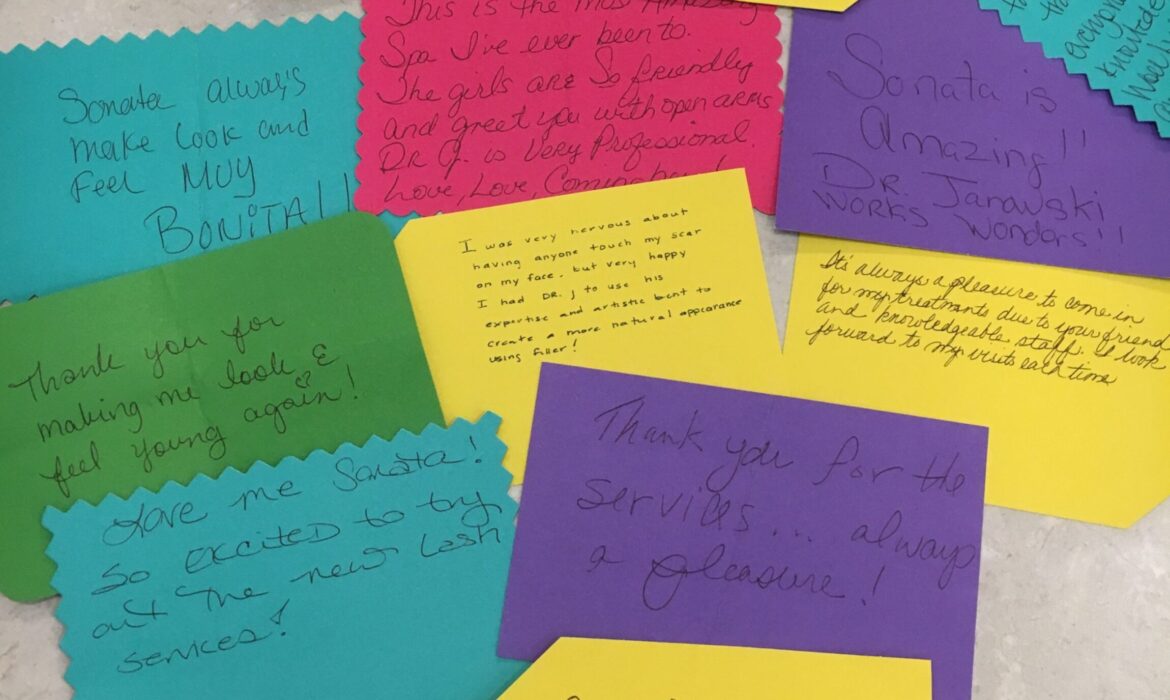 Sonata always
make look and
Feel MUY
BONITA!!
This is the most Amazing
Spa I've ever been to.
The girls are So friendly
and greet you with open arms
DR J. is Very Professional.
Love, Love, Coming
Sonata is
Amazing!!
DR. Janowski
WORKS Wonders!!
I was very nervous about
having anyone touch my scar
on my face. but very happy
I had DR. J to use his
expertise and artistic bent to
create a more natural appearance
using filler!
It's always a pleasure to come in
for my treatments due to your friend
and knowledgeable staff. I look
forward to my visits each time
Thank you for
making me look &
feel young again!
Love me Sonata!
So excited to try
out the new Lash
services!
Thank you for the
services... always
a pleasure!